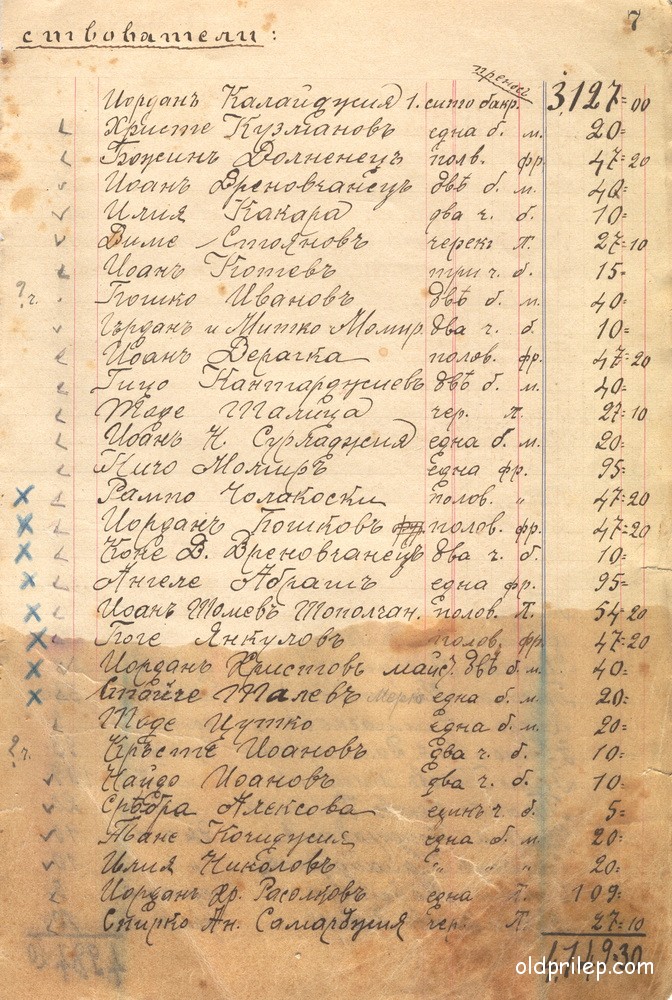 7
ствователи:
преносъ 3,127=00
Иорданъ Калайджия 1. сито бакр.
Христе Кузмановъ една б. м. 20=
Божинъ Долненецъ полв. фр. 47=20
Иоанъ Дреновчанецъ двѣ б. м. 40=
Илия Какара два ч. б. 10=
Диме Стояновъ черек Л. 27=10
Иоанъ Котевъ три ч. б. 15=
?ч. Пошко Ивановъ двѣ б. м. 40=
Гърданъ и Митко Момир. два ч. б. 10=
Иоанъ Дерачка полов. фр. 47=20
Гицо Кантарджиевъ двѣ б. м. 40=
Тоде Шалица чер. Л. 27=10
Иоанъ Н. Сурладжия една б. м. 20=
Кичо Момиръ Една фр. 95=
Рампо Чолакоски полов. " 47=20
Иорданъ Пошковъ полов. фр. 47=20
Коне Д. Дреновчанецъ два ч. б. 10=
Ангеле Абрашъ една фр. 95=
Иоанъ Томевъ Тополчан. полов. Л. 54=20
Гоге Янкуловъ полов. фр. 47=20
Иорданъ Христовъ майс. двѣ б. м. 40=
Стойче Талевъ една б. м. 20=
Тоде Цутко Една б. м. 20=
?ч. Кръсте Иоановъ два ч. б. 10=
Найдо Иоановъ два ч. б. 10=
Срѣбра Алексова единъ ч. б. 5=
Тане Кочиджия една б. м. 20=
Илия Николовъ " " " 20=
Иорданъ Хр. Расолковъ една Л. 109=
Спирко Ан. Самарджия чер. Л. 27=10
4,149=30
oldprilep.com